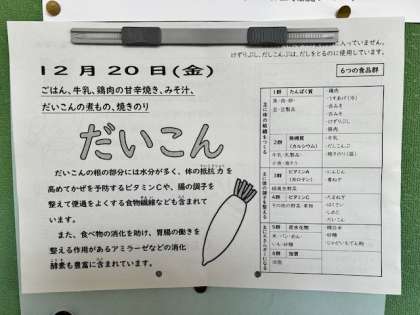 に入っていません。
けずりぶし、だしこんぶは、だしをとるのに使用しています。
12月20日(金)
6つの食品群
ごはん、牛乳、鶏肉の甘辛焼き、みそ汁、
だいこんの煮もの、焼きのり
だいこん
だいこんの根の部分には水分が多く、体の抵抗力を
高めてかぜを予防するビタミンCや、腸の調子を
整えて便通をよくする食物繊維なども含まれて
います。
また、食べ物の消化を助け、胃腸の働きを
整える作用があるアミラーゼなどの消化
酵素も豊富に含まれています。
主に体の組織をつくる
1群 たんぱく質
魚・肉・卵・
豆・豆製品
・鶏肉
・うすあげ(冷)
・赤みそ
・けずりぶし
2群 無機質
(カルシウム)
牛乳・乳製品・
・牛乳
・だしこんぶ
・焼きのり
主に体の調子を整える
3群 ビタミンA
(カロテン)
緑黄色野菜
・にんじん
4群 ビタミンC
その他の野菜・果物
・だいこん
5群 炭水化物
米・パン・めん・
いも・砂糖
・精白米
・砂糖
・じゃがいもでん粉
6群 脂質
油脂